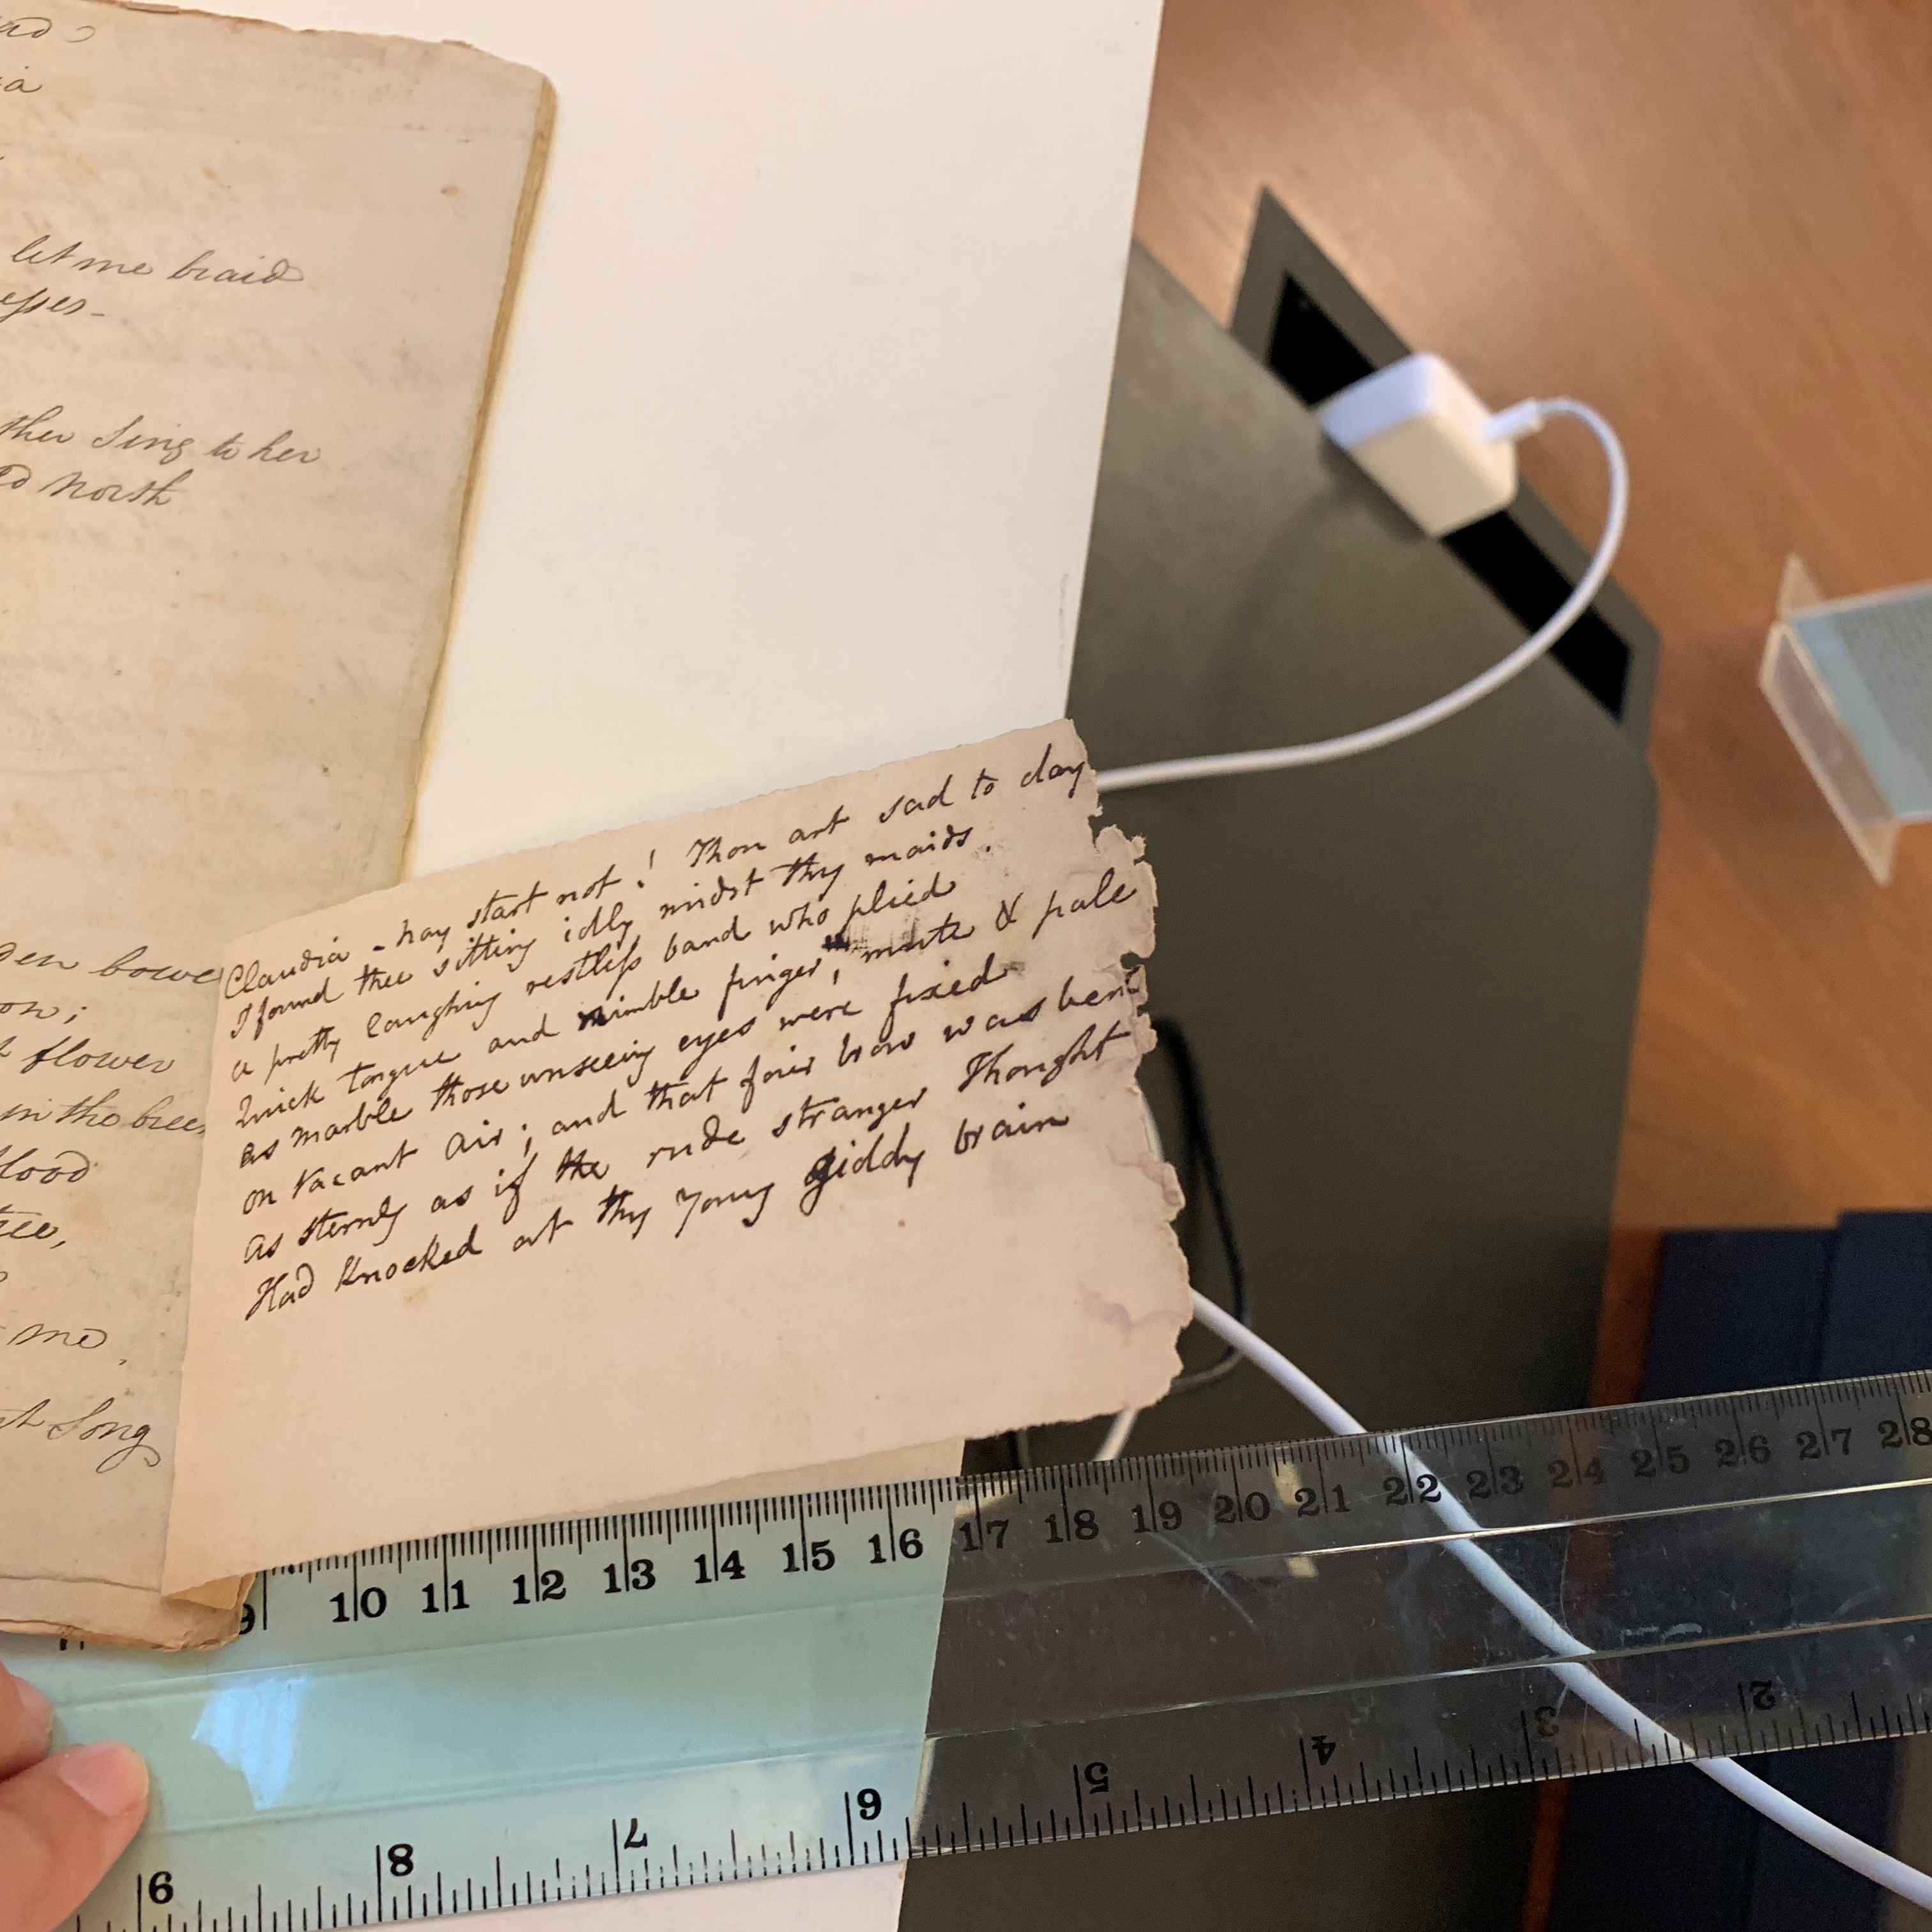 let me braid
esses-
ther Sing to her
North
den bowe
on;
flower
in the bree
flood
tree,
me,
Song
Claudia - nay start not! Thou art sad to day
I found thee sitting idly midst thy maids.
a pretty laughing restless band who plied
Quick tongue and nimble finger, mute & pale
as marble those unseeing eyes were fixed
on vacant air; and that fair brow was bent
as sternly as if the rude stranger Thought
Had knocked at thy young giddy brain
9 10 11 12 13 14 15 16 17 18 19 20 21 22 23 24 25 26 27 28
9 8 7 6 5 4 3 2